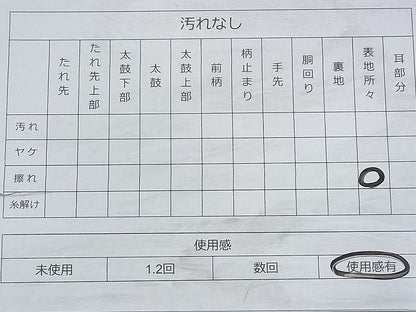 汚れなし
たれ先 たれ先上部 太鼓下部 太鼓 太鼓上部 前柄 柄止まり 手先 胴回り 裏地 表地所々 耳部分
汚れ
ヤケ
擦れ ○
糸解け
使用感
未使用 1.2回 数回 使用感有